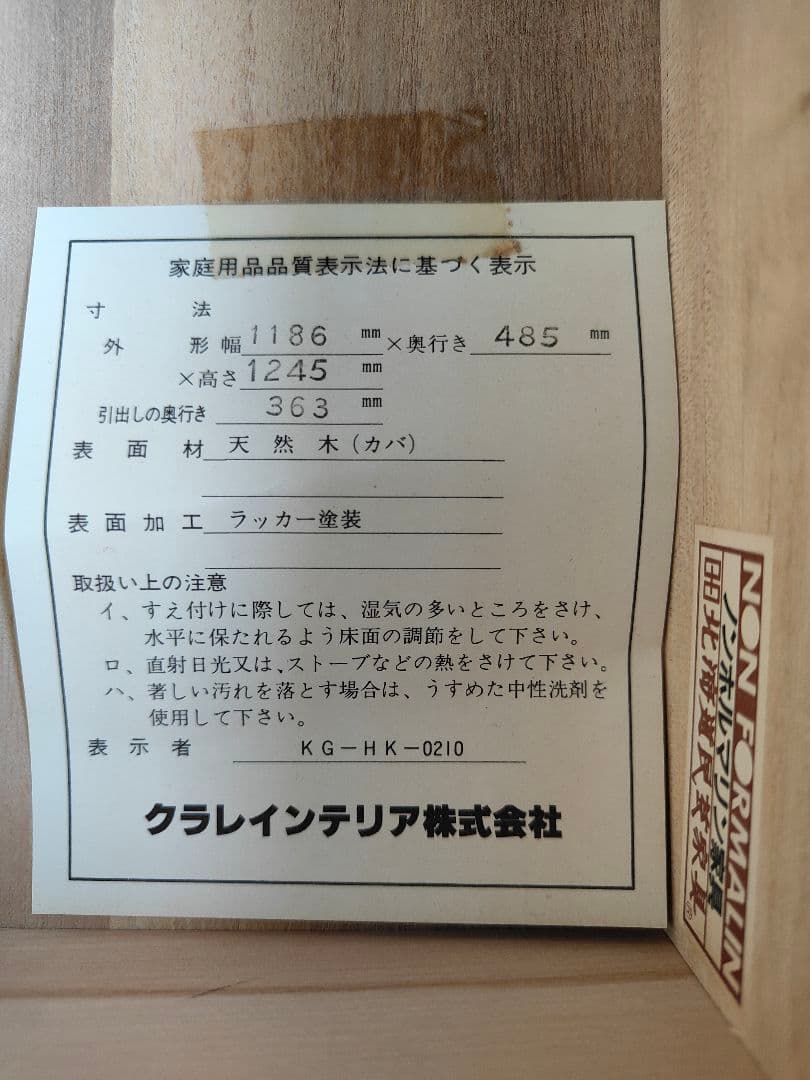 家庭用品品質表示法に基づく表示
寸法
外形幅 1186 mm ×奥行き 485 mm
×高さ 1245 mm
引出しの奥行き 363 mm
表面材 天然木(カバ)
表面加工 ラッカー塗装
取扱い上の注意
イ、すえ付けに際しては、湿気の多いところをさけ、
水平に保たれるよう床面の調節をして下さい。
ロ、直射日光又は、ストーブなどの熱をさけて下さい。
ハ、著しい汚れを落とす場合は、うすめた中性洗剤を
使用して下さい。
表示者 KG-HK-0210
クラレインテリア株式会社
NON FORMALIN
ノンホルマリン家具
北海道民芸家具®